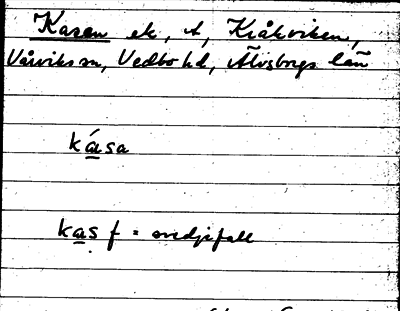 Kasen ek, A, Kråkviken,
Vårviks sn, Vedbo hd, Älvsborgs län
kása
kas f = svedjefall